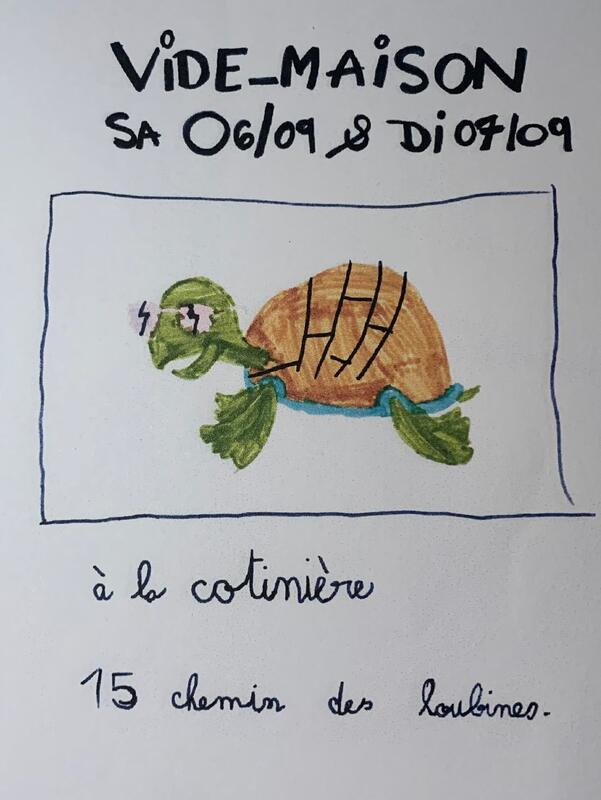 VIDE-MAISON
SA 06/09 & Di 07/09
à la cotinière
15 chemin des loubines.